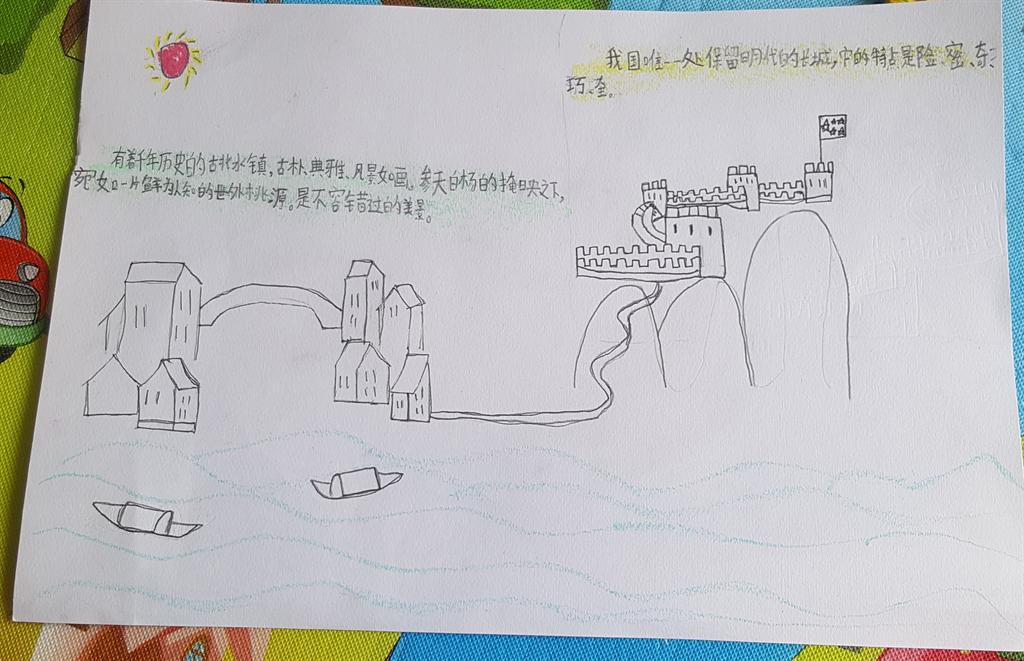 我国唯一一处保留明代的长城,它的特点是险、密、奇、
巧、全。
有着千年历史的古北水镇,古朴、典雅、风景如画。参天白杨的掩映之下,
宛如一片鲜为人知的世外桃源。是不容错过的美景。